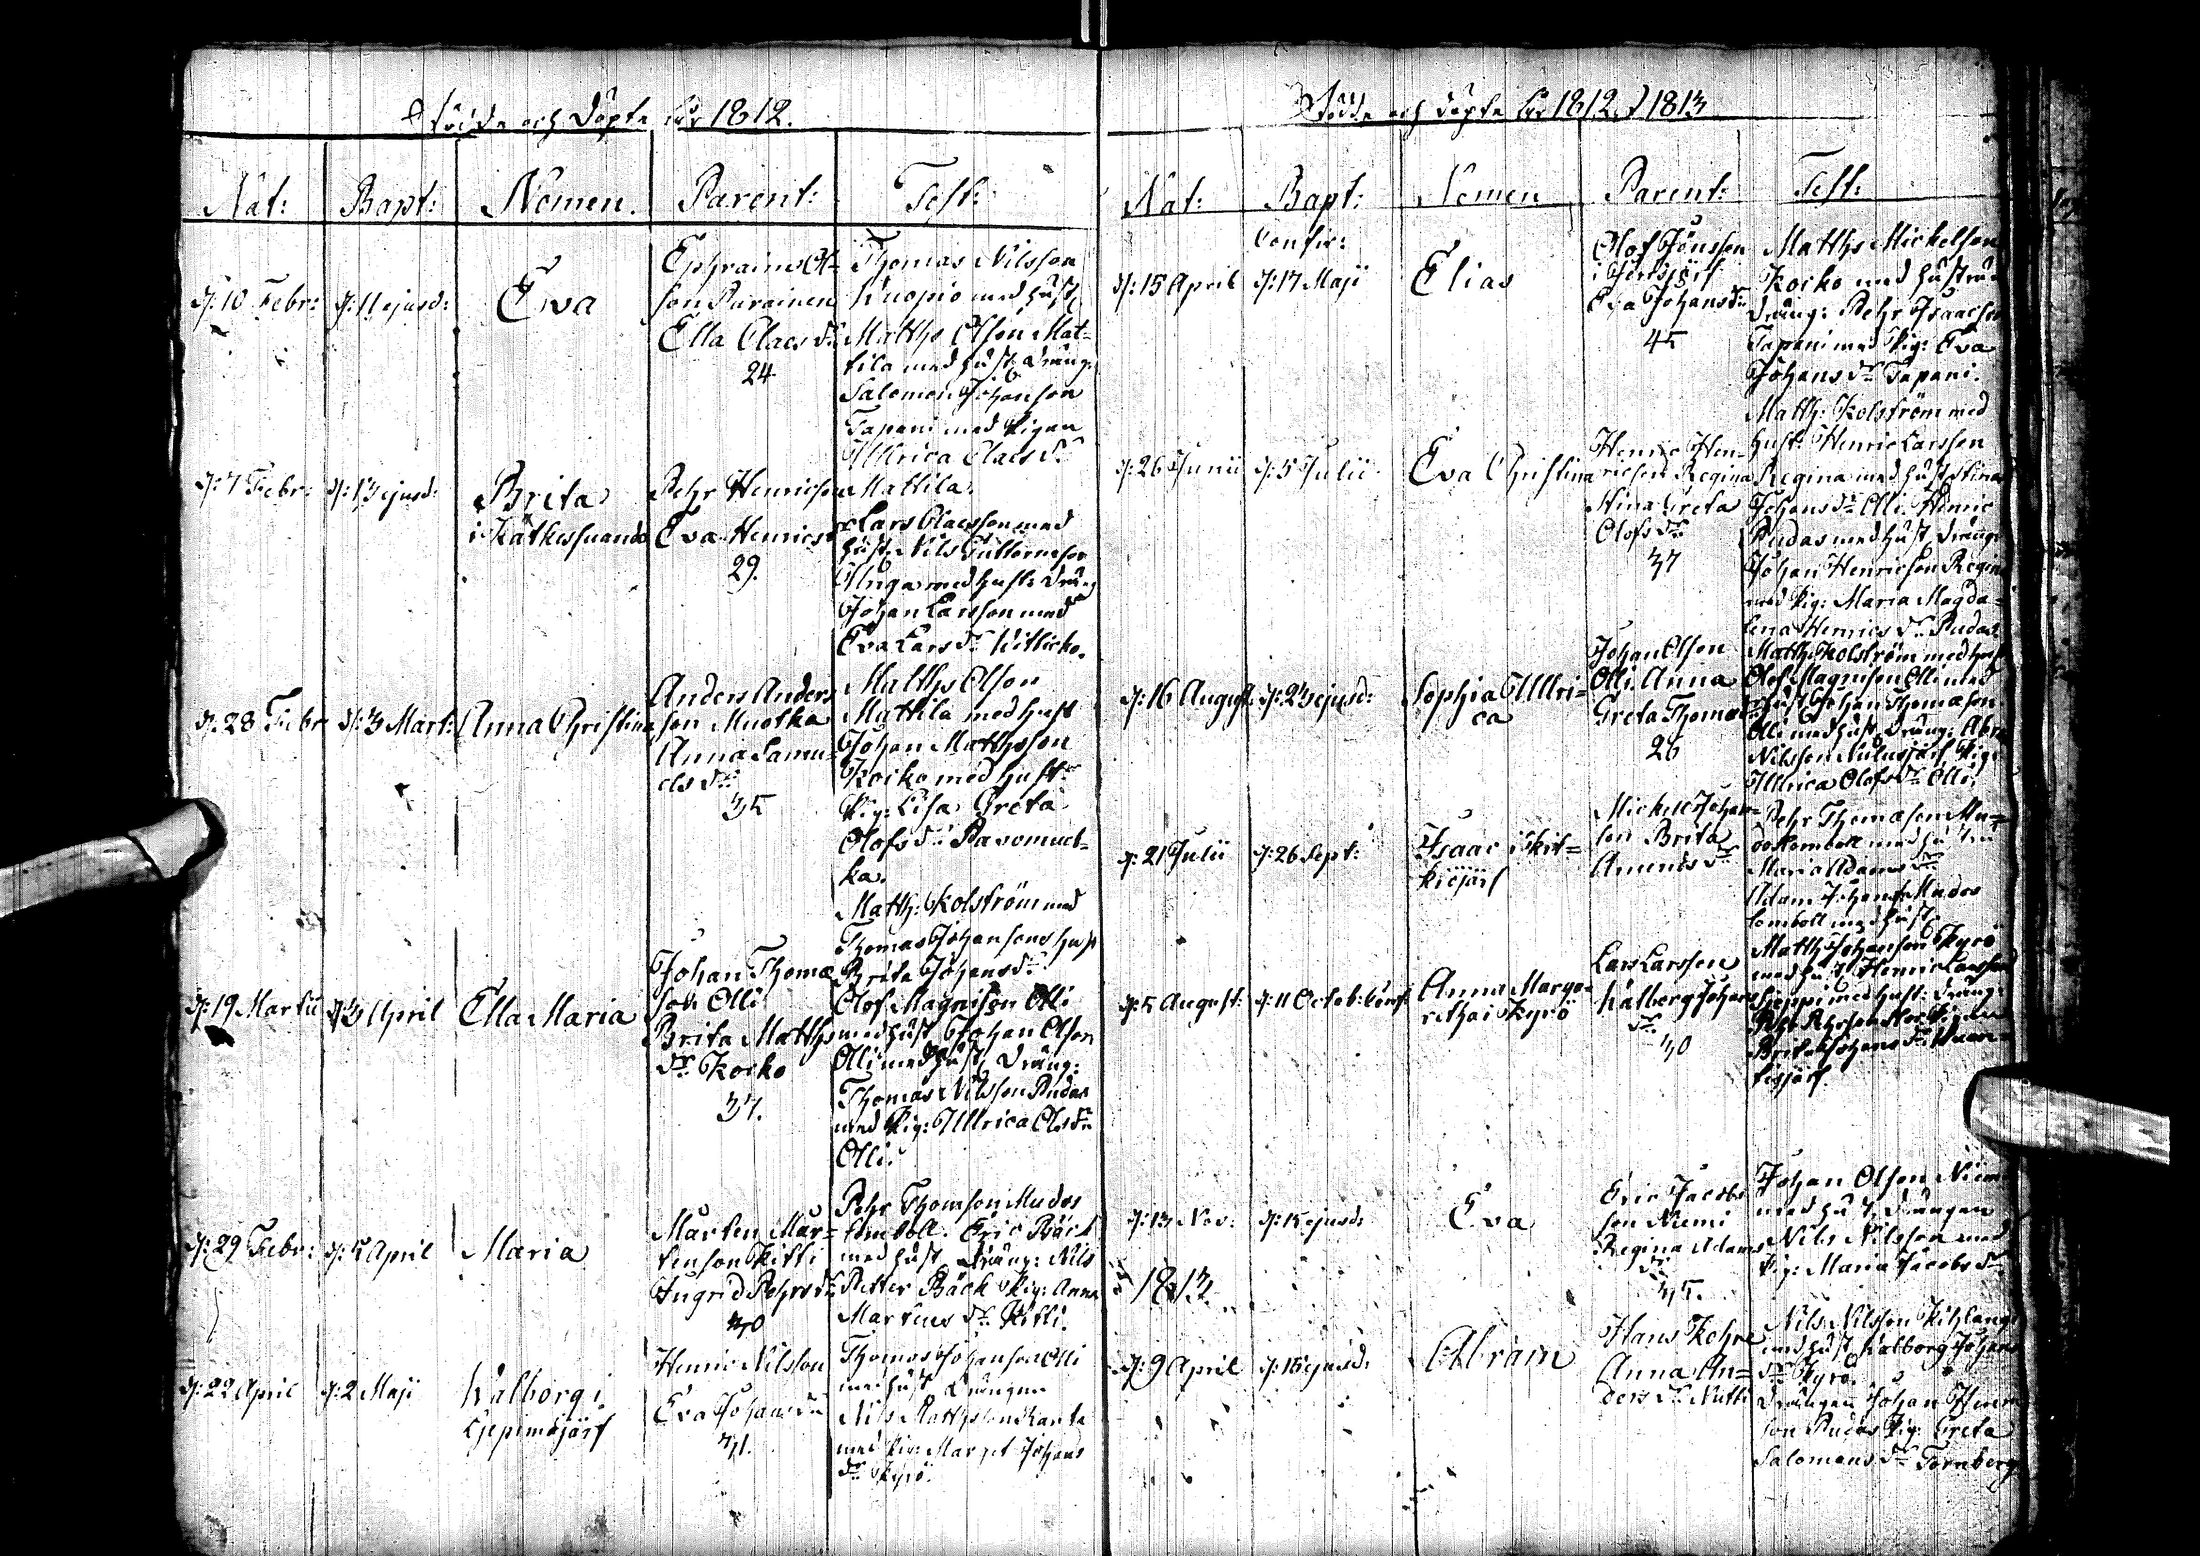 Födde och Döpte År 1812.
Nat: Bapt: Nomen. Parent: Test:
d: 10 Febr: d: 11 ejusd: Eva
Ephraim Ol-
son Parainen
Ella Claes dr
24
Thomas Nilsson
Kuopio med hust.
Matths Olson Mat-
tila med hust. Dräng:
Salomon Johansson
Tapani med Pigan
Ullrica Claes dr
Mattila.
d: 7 Febr: d: 13 ejusd: Brita
i Kätkesuando
Pehr Henricson
Eva Henrics
29.
Lars Claesson med
hust. Nils Guttormsson
med hust. Dräng
Johan Larsson med
Eva Lars dr
d: 28 Febr d: 3 Mart: Anna Christina
Anders Anders
son Muotka
Anna Samu-
els dr
35
Matths Olson
Mattila med hust
Johan Mathsson
Koiko med hust.
Pig: Lisa Greta
Olofs dr Pavomuot-
ka.
d: 19 Martii d: 3 April Ella Maria
Johan Thomæ
son Olli
Brita Matths
dr Koiko
37.
Matth: Kolström med
Thomas Johansons hust
Brita Johans dr
Olof Magnison Olli
med hust. Johan Olson
Olli med hust. Dräng:
Thomas Nilsson Rudas
med Pig: Ullrica Ols dr
Olli.
d: 29 Febr: d: 5 April Maria
Mårten Mår-
tenson Kitti
Ingrid Pehrs dr
30
Pehr Thomson Mudos
lomboll. Eric Bäck
med hust. Dräng: Nils
Petter Bäck Pig: Anna
Martins dr Kitti.
d: 22 April d: 2 Maji Walborg i
Gepimäjärf
Henric Nilsson
Eva Johans dr
31.
Thomas Johanson Olli
med hust. Drängen
Nils Mathsson
med Pig: Margt Johans
dr Kyrö.
Födde och Döpte År 1812. 1813
Nat: Bapt: Nomen Parent: Test:
Confir:
d: 15 April d: 17 Maji Elias
Olof Jönsson
i Jerisjärf
Eva Johans dr
45
Matths Mickelson
Koiko med hustru
Dräng: Pehr Isaacson
Tapani med Pig: Eva
Johans dr Tapani.
d: 26 Junii d: 5 Julii Eva Christina
Henric Hen-
ricson Regina
Stina Greta
Olofs dr
37
Matth: Kolström med
hust. Henric Larsson
Regina med hust. Stina
Johans dr Olli. Henric
Rudas med hust. Dräng:
Johan Henricson Regina
med Pig: Maria Magda-
lena Henrics dr Rudas
d: 16 August d: 23 ejusd: Sophia Ullri-
ca
Johan Olson
Olli. Anna
Greta Thomæ
26
Matth. Kolström med hust
Olof Magnison Olli med
hust Johan Thomæson
Olli med hust. Dräng: Abra
Nilsson Pig:
Ullrica Olofs dr Olli.
d: 21 Julii d: 26 Sept: Isaac i Kit-
kiöjärf
Mickel Johan-
son Brita
Amunds dr
Pehr Thomæson Mu-
doslomboll med
Maria Adams dr
Adam Johans Mudos
lomboll med hust.
d: 5 August: d: 11 Octob: Conf: Anna Marga-
retha i Kyrö
Lars Larsson
Walborg Johans
dr
30
Matth Johanson Kyrö
med Henric Larsson
med hust: Dräng:
Pigan
Brita Johans dr
d: 13 Nov: d: 15 ejusd: Eva
Eric Jacobs
son Niemi
Regina Adams
dr
35.
Johan Olson Niemi
med hust. Drängen
Nils Nilsson med
Pig: Maria Jacobs dr
1813.
d: 9 April d: 15 ejusd: Abram
Hans
Anna An-
ders dr
Nils Nilsson Kihlangi
med hust Walborg Johans
dr Kyrö.
Drängen Johan
son Rudas Pig: Greta
Salomons dr Fornberg